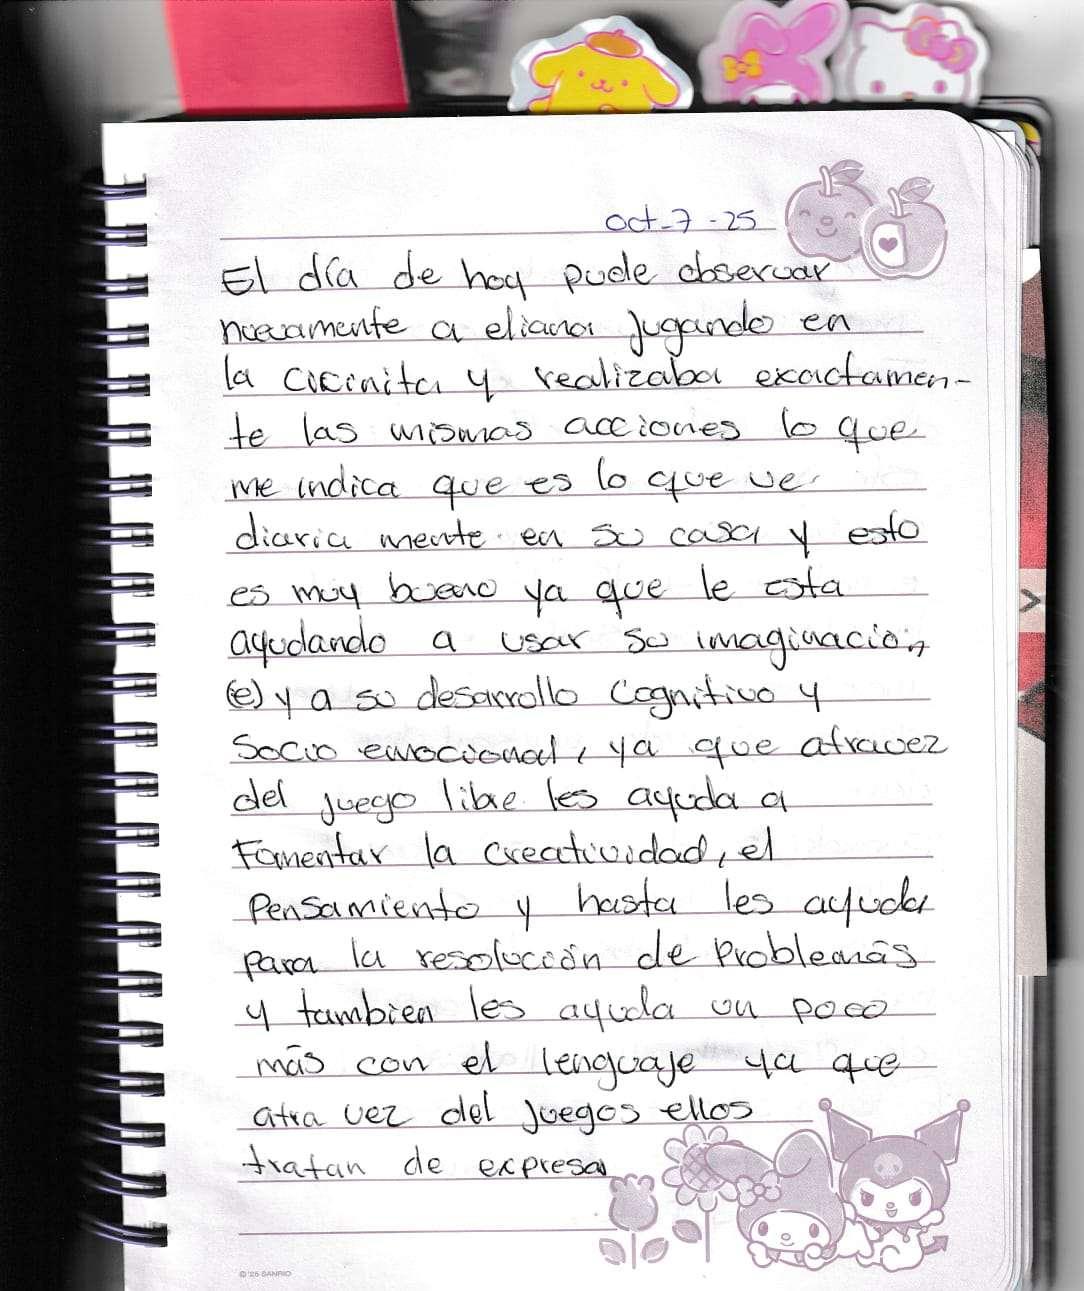 oct-7-25
El día de hoy pude observar
nuevamente a eliana jugando en
la cocinita y realizaba exactamen-
te las mismas acciones lo que
me indica que es lo que ve
diaria mente en su casa y esto
es muy bueno ya que le esta
ayudando a usar su imaginación
(e) y a su desarrollo cognitivo y
socio emocional, ya que atravez
del juego libre les ayuda a
Fomentar la creatividad, el
Pensamiento y hasta les ayuda
para la resolución de Problemás
y tambien les ayuda un poco
más con el lenguaje ya que
atra vez del juegos ellos
tratan de expresa
© '25 SANRIO